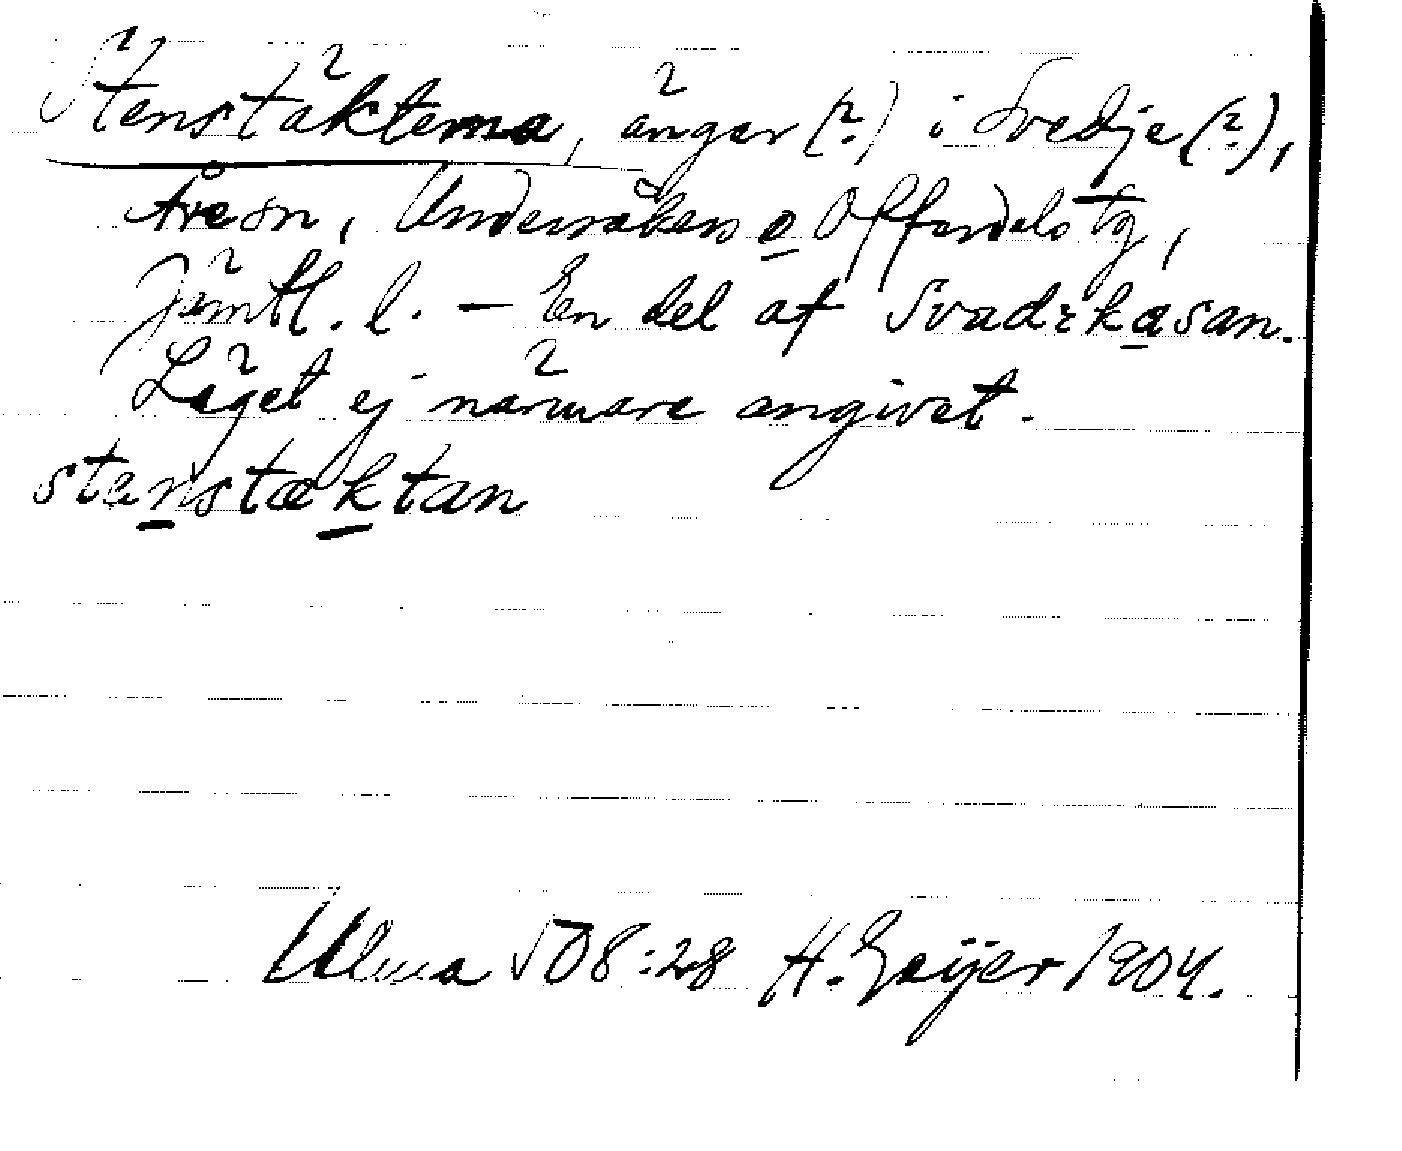 Stenstäkterna, ängar (?) i Svedje (?),
Åre sn, Undersåkers o Offerdals tg,
Jämtl. l. – En del af Svadɛkasan.
Läget ej närmare angivet.
stenstæktan
Ulma 508:28 H. Geijer 1904.